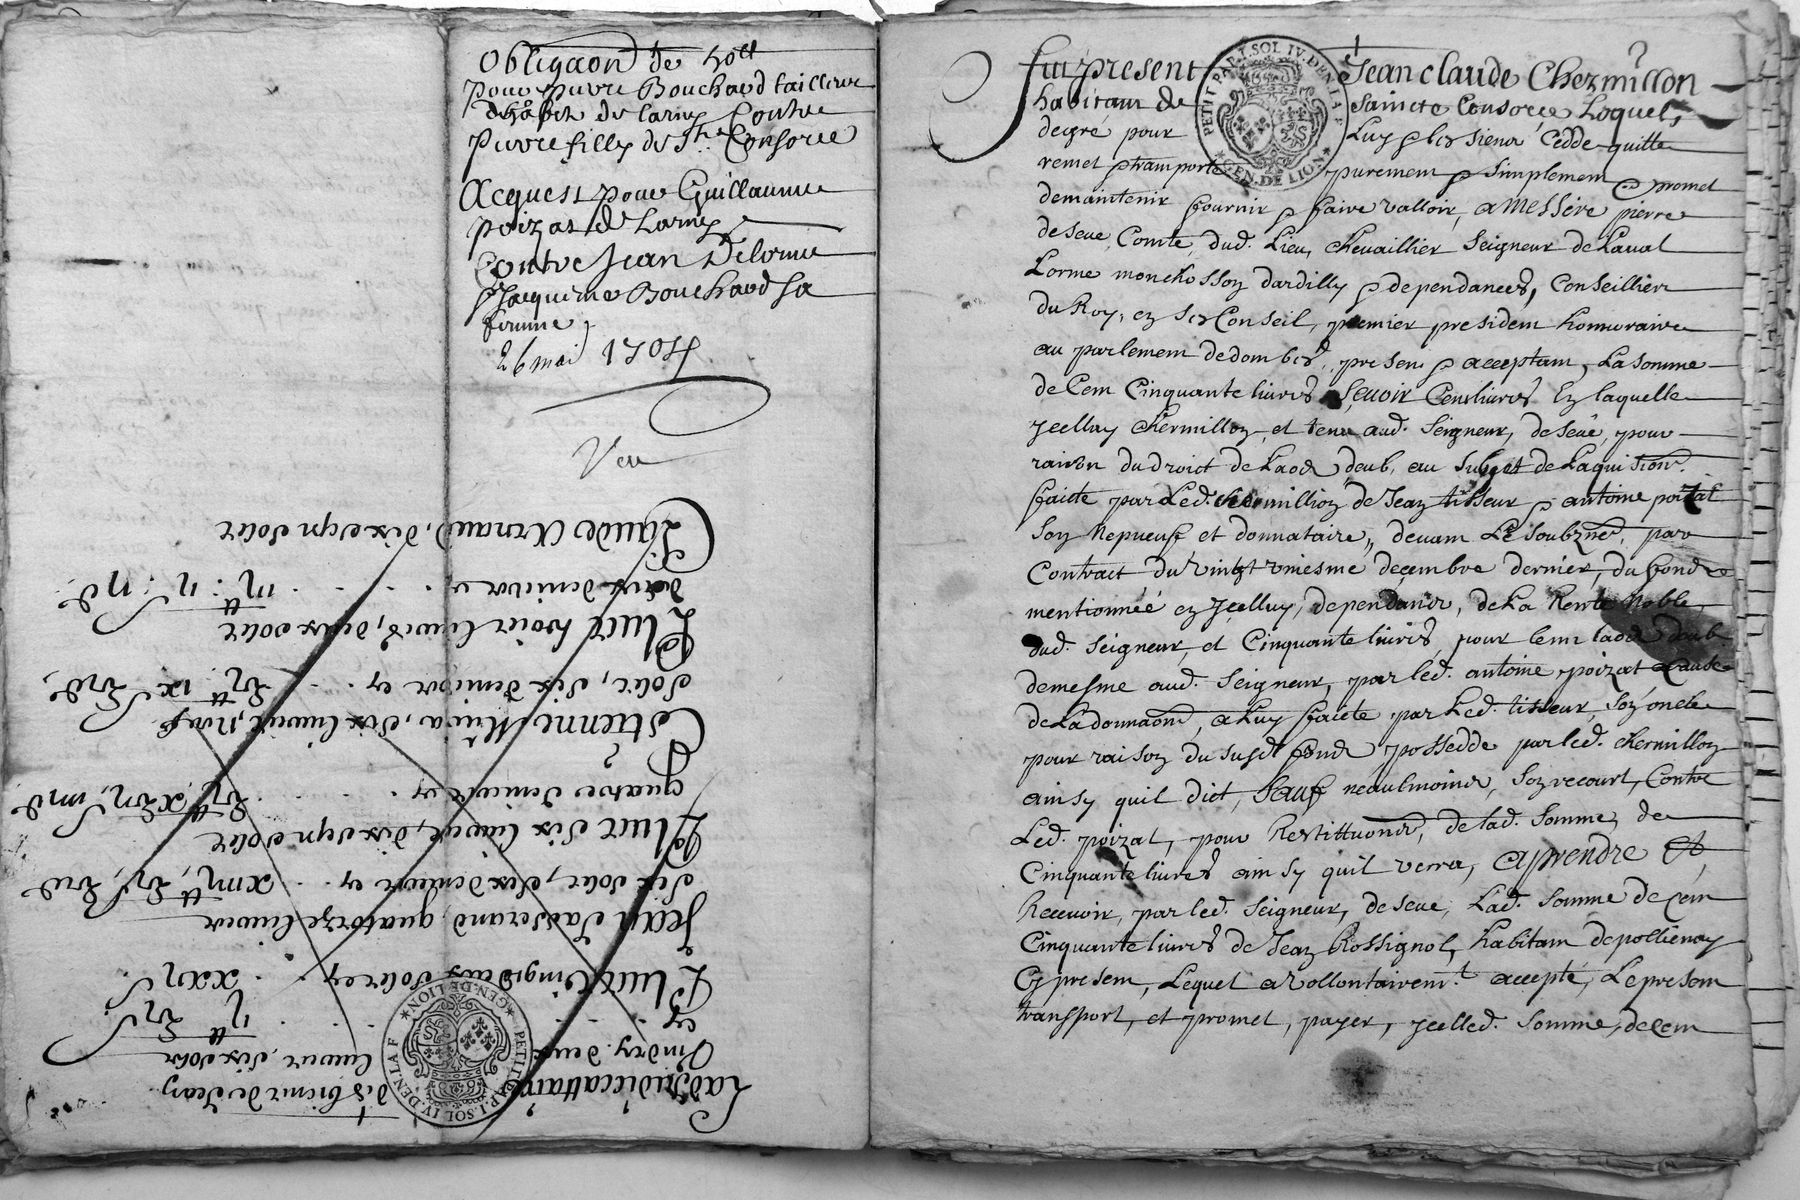 Obligaon de 50tt
pour pierre Bouchard tailleur
d'habit de larny Contre
Pierre filly de Ste Consorce
Acquest pour Guillaume
poizat de Larny
Contre Jean Delorme
& Jacquême Bouchard sa
femme
26 mai 1704
Veu
Ladjudiccattaire des biens de Jean
Andry deux livres, dix solz
Plus vingt deux solz
Jean Jasserand, quatorze livres
six solz, six deniers cy
Plus dix livres, dix sept solz
quatre deniers cy
Estienne Miria, dix livres, neuf
solz, dix deniers cy
Plus trois livres, deux solz
deux deniers
Claude Arnaud, dix sept solz
PETIT PAP. I. SOL IV. DEN. LA F
GEN. DE LION
Fut present Jean claude Chermillon
habitant de Saincte Consorce Loquel,
de gré pour Luy & les siens Cedde quitte
remet & transporte purement & simplement & promet
de maintenir fournir & faire valloir, a Messire pierre
de seve Comte dud. Lieu, chevaillier Seigneur de Laval
Lorme monchosson dardilly & dependances, Conseillier
du Roy, en ses Conseil, premier president honnoraire
au parlement de dombes, presen & acceptant, La somme
de Cent Cinquante livres sçavoir Cent livres En laquelle
jcelluy chermillon, et tenu aud. Seigneur, de seve, pour
raison du droict de Laods deub, au subjet de Laquisiõn
faicte par Led. chermillion de Jean tisseur & antoine poizat
son nepveuf et donnataire, devant Le soubzné, par
Contract du vingt uniesme deçembre dernier, du fonds
mentionnéé en jcelluy, dependant, de la Rente Noble
dud. Seigneur, et Cinquante livres, pour semt laods deub
de mesme aud. Seigneur, par led. antoine poizat a cause
de La donnaõn, a Luy faicte par Led. tisseur, son oncle
pour raison du susd fonds possedde par led. chermillon
ainsy quil dict, sauf neaulmoins, son recourt, Contre
Led. poizat, pour Restittuõn, de lad. somme, de
Cinquante livres ainsy quil verra, a prendre &
Recevoir, par led. Seigneur, de seve, Lad. somme de Cent
Cinquante livres de Jean Rossignol, habitant de pollienay
Cy present, Lequel a vollontairemt. accepté, Le present
transport, et promet, payer, jcelled. somme, de Cent
PETIT PAP. I. SOL IV. DEN. LA F
GEN. DE LION